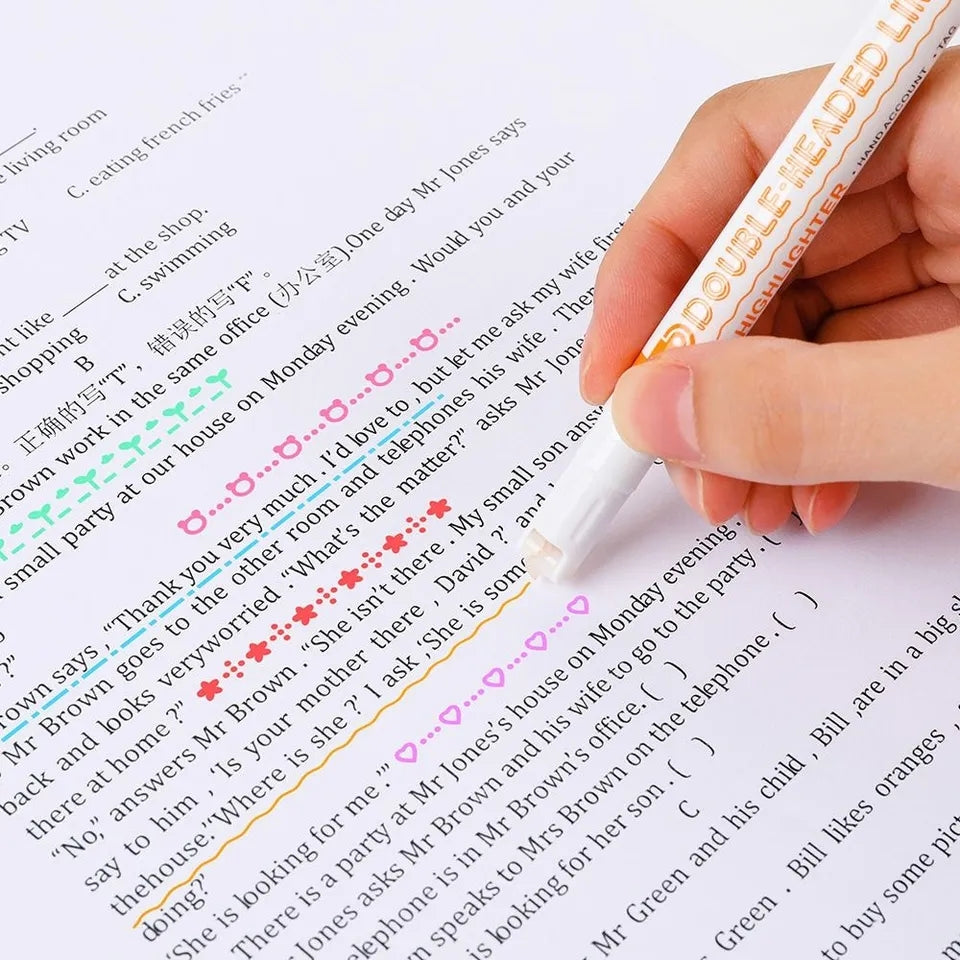 living room
C. eating french fries
TV
at the shop.
nt like
C. swimming
shopping
B
。正确的写“T”，错误的写“F”。
rown work in the same office (办公室).One day Mr Jones says
small party at our house on Monday evening . Would you and your
rown says ,“Thank you very much , I’d love to , but let me ask my wife first
Mr Brown goes to the other room and telephones his wife . The
back and looks veryworried .“What’s the matter?” asks Mr Jone
there at home ?”
“No,” answers Mr Brown .“She isn’t there . My small son answ
say to him , ‘Is your mother there , David ?’, and
thehouse.’‘Where is she ?’ I ask ‘She is som
doing?’
‘She is looking for me .’”
There is a party at Mr Jones’s house on Monday evening. (
Jones asks Mr Brown and his wife to go to the party. (
elephone is in Mr Brown’s office. ( )
n speaks to Mrs Brown on the telephone . ( )
is looking for her son . ( )
C
Mr Green and his child , Bill ,are in a big s
Green . Bill likes oranges ,
to buy some pict
DOUBLE-HEADED LIN
HIGHLIGHTER · HAND ACCOUNT · TAG